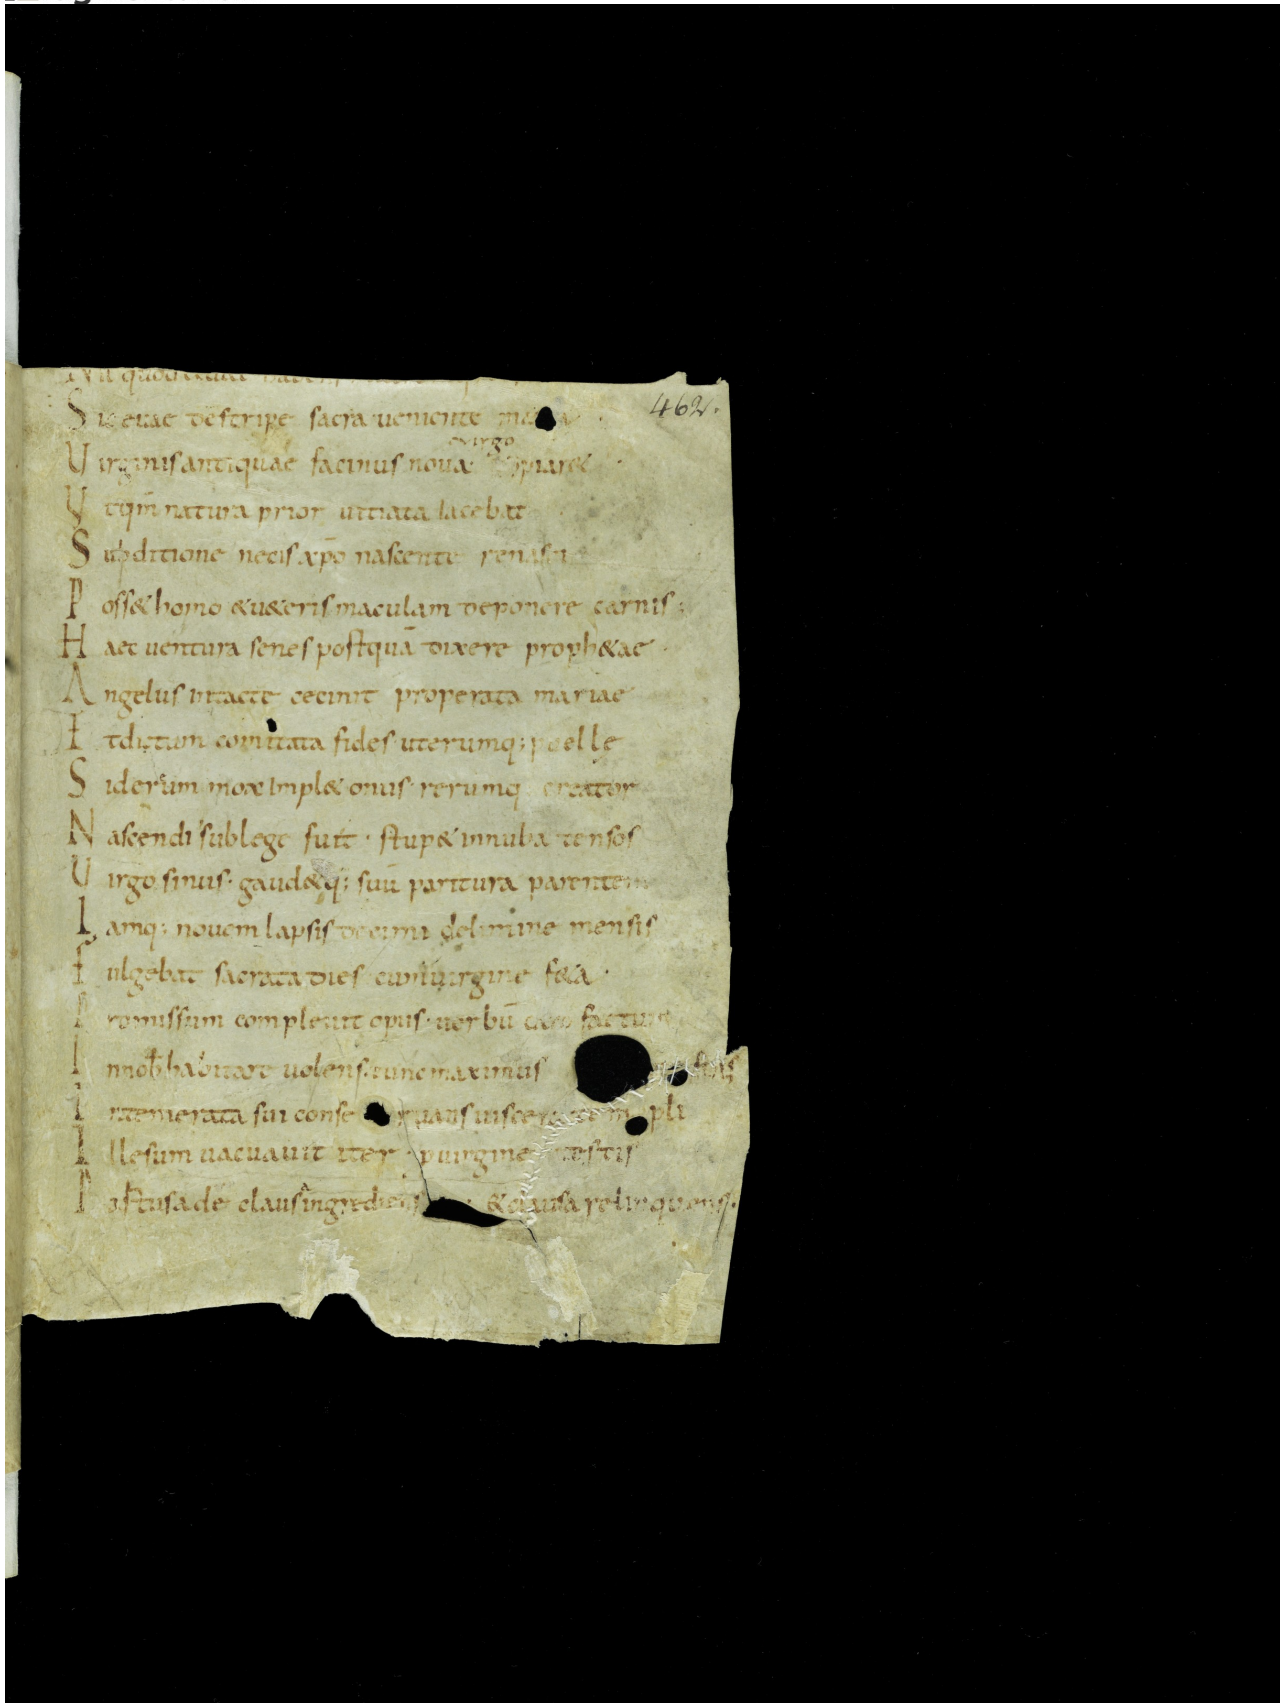 462.
Sic evae destirpe sacra veniente
virgo
Virginis antiquae facinus nova piar&
Vtqm̄ natura prior vitiata iacebat
Subditione necis xp̄o nascente renasci
Poss& homo &u&eris maculam deponere carnis;
Haec ventura senes postquā dixere proph&ae
Angelus intacte cecinit properata mariae
Et dictum comitata fides uterumq; puelle
Siderum mox impl& onus rerumq; creator
Nascendi sublege fuit · stup& innuba tensos
Virgo sinus · gaud&q; suū paritura parentem
Iamq; novem lapsis decimi delimine mensis
Fulgebat sacrata dies cum virgine f&a ·
Promissum complevit opus · verbū caro factum
Innob̄ habitare volens · tunc maximus
Intemerata sui conse uans viscera templi
Illesum vacuavit iter · p virgine testis
Postusade clausā ingrediens &clausa relinquens ·